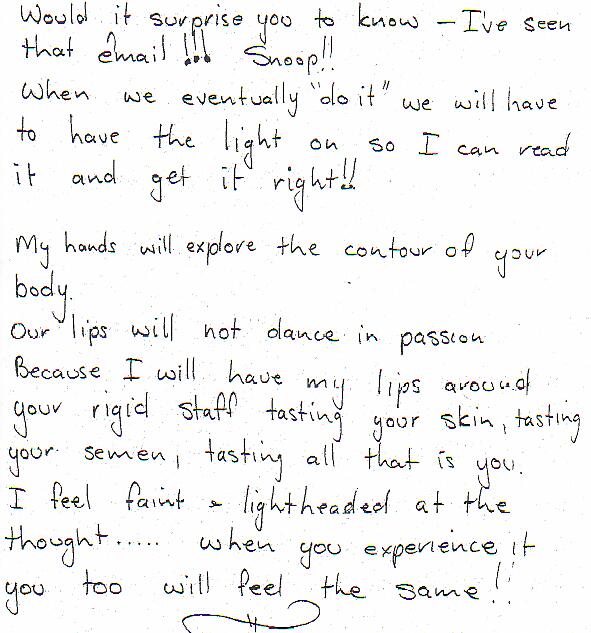 Would it surprise you to know – I've seen
that email !!! Snoop!!
When we eventually "do it" we will have
to have the light on so I can read
it and get it right!!
My hands will explore the contour of your
body.
Our lips will not dance in passion
Because I will have my lips around
your rigid staff tasting your skin, tasting
your semen, tasting all that is you.
I feel faint & lightheaded at the
thought..... when you experience it
you too will feel the same!!